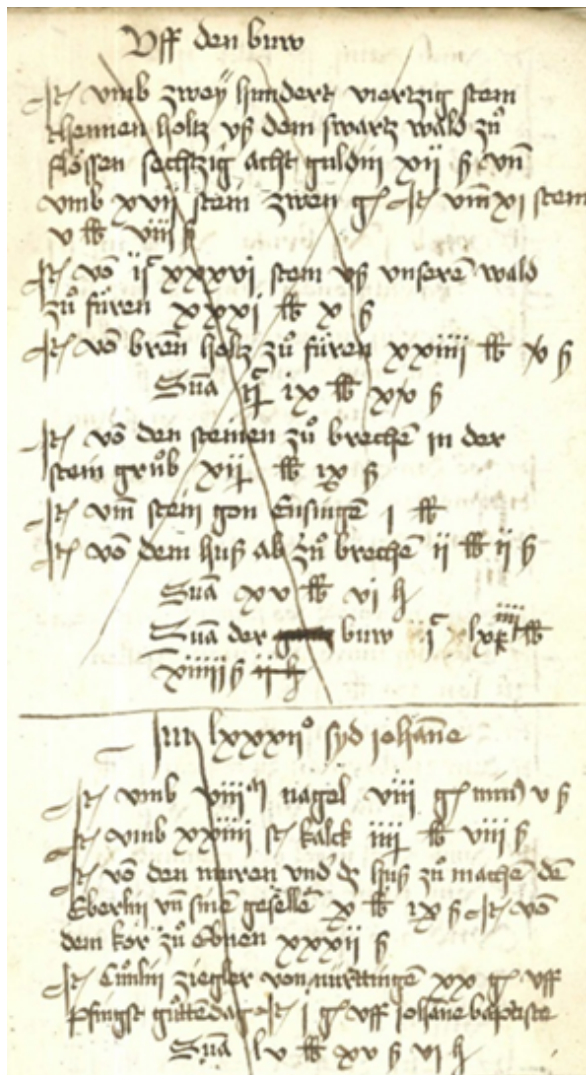 Uff den buw
It vmb zweÿ hundert viertzig stem
thennen holtz vß dem swartz wald zů
flössen sechtzig acht guldin xij ß vnn̄
vmb xvij stem zwen g It vm̄ xi stem
v lb viiij ß
It vō ijc xxxvi stem vß vnserē wald
zů fůren xxxi lb x ß
It vō bren̄ holtz zů fůren xxiiii lb ß
Sūa ijc ix lb ß
It vō den steinen zů brechē in der
stein grůb xij lb ix ß
It vm̄ stein gon Ensingē i lb
It vō dem huß ab zů brechē ii lb ii ß
Sūa xv lb vi h
Sūa der buw iic lb
xiiiii ß ii h
Im lxxxiio syd iohān̄e
It vmb viiiM nagel viii g min9 v ß
It vmb xxiiii st kalck iiij lb viii ß
It vō den muren vnd dz huß zů machen dē
Eberlin vn̄ sinē gesellē x lb ix ß It vō
dem kor zů ebnen xxxii ß
It Cůnlin ziegler von nürttingē xx g vff
Pfingst gůttēdag It i g vff iohān̄e baptiste
Sūa lv lb xv ß vi h